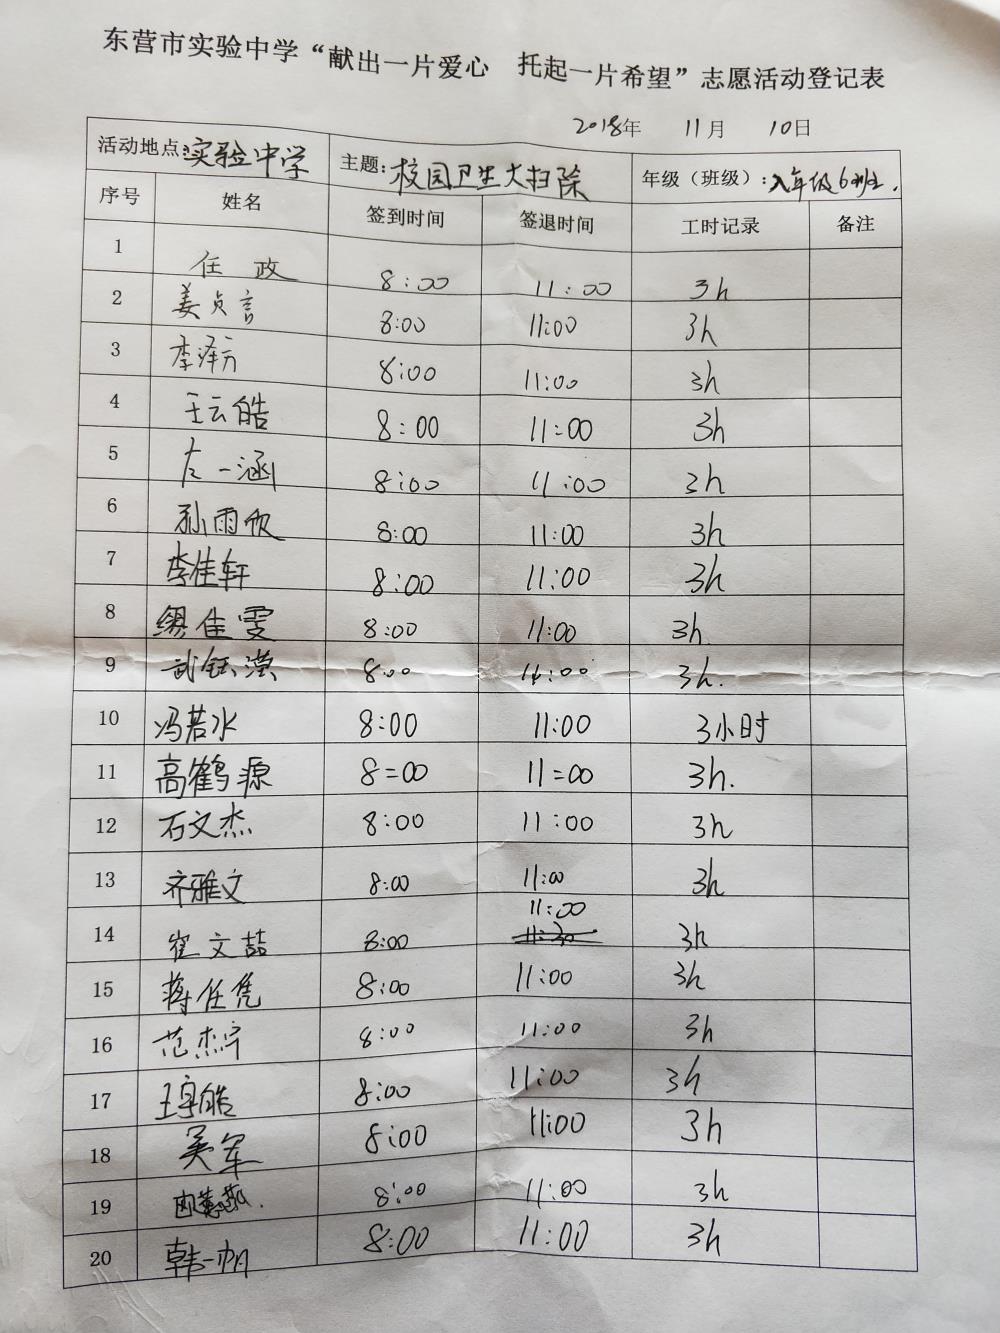 东营市实验中学“献出一片爱心 托起一片希望”志愿活动登记表
2018年 11月 10日
活动地点:实验中学 主题:校园卫生大扫除 年级（班级）:八年级6班.
序号 姓名 签到时间 签退时间 工时记录 备注
1 任政 8:00 11:00 3h
2 姜贞言 8:00 11:00 3h
3 李泽方 8:00 11:00 3h
4 王云皓 8:00 11:00 3h
5 左一涵 8:00 11:00 3h
6 孙雨欣 8:00 11:00 3h
7 李佳轩 8:00 11:00 3h
8 缪佳雯 8:00 11:00 3h.
9 武钰滢 8:00 11:00 3h.
10 冯若水 8:00 11:00 3小时
11 高鹤源 8=00 11=00 3h.
12 石文杰 8:00 11:00 3h
13 齐雅文 8:00 11:00 3h
11:00
14 崔文喆 8:00 11:30 3h
15 蒋任凭 8:00 11:00 3h
16 范杰宇 8:00 11:00 3h
17 王宇皓 8:00 11:00 3h
18 吴军 8:00 11:00 3h
19 8:00 11:00 3h
20 韩一帆 8:00 11:00 3h